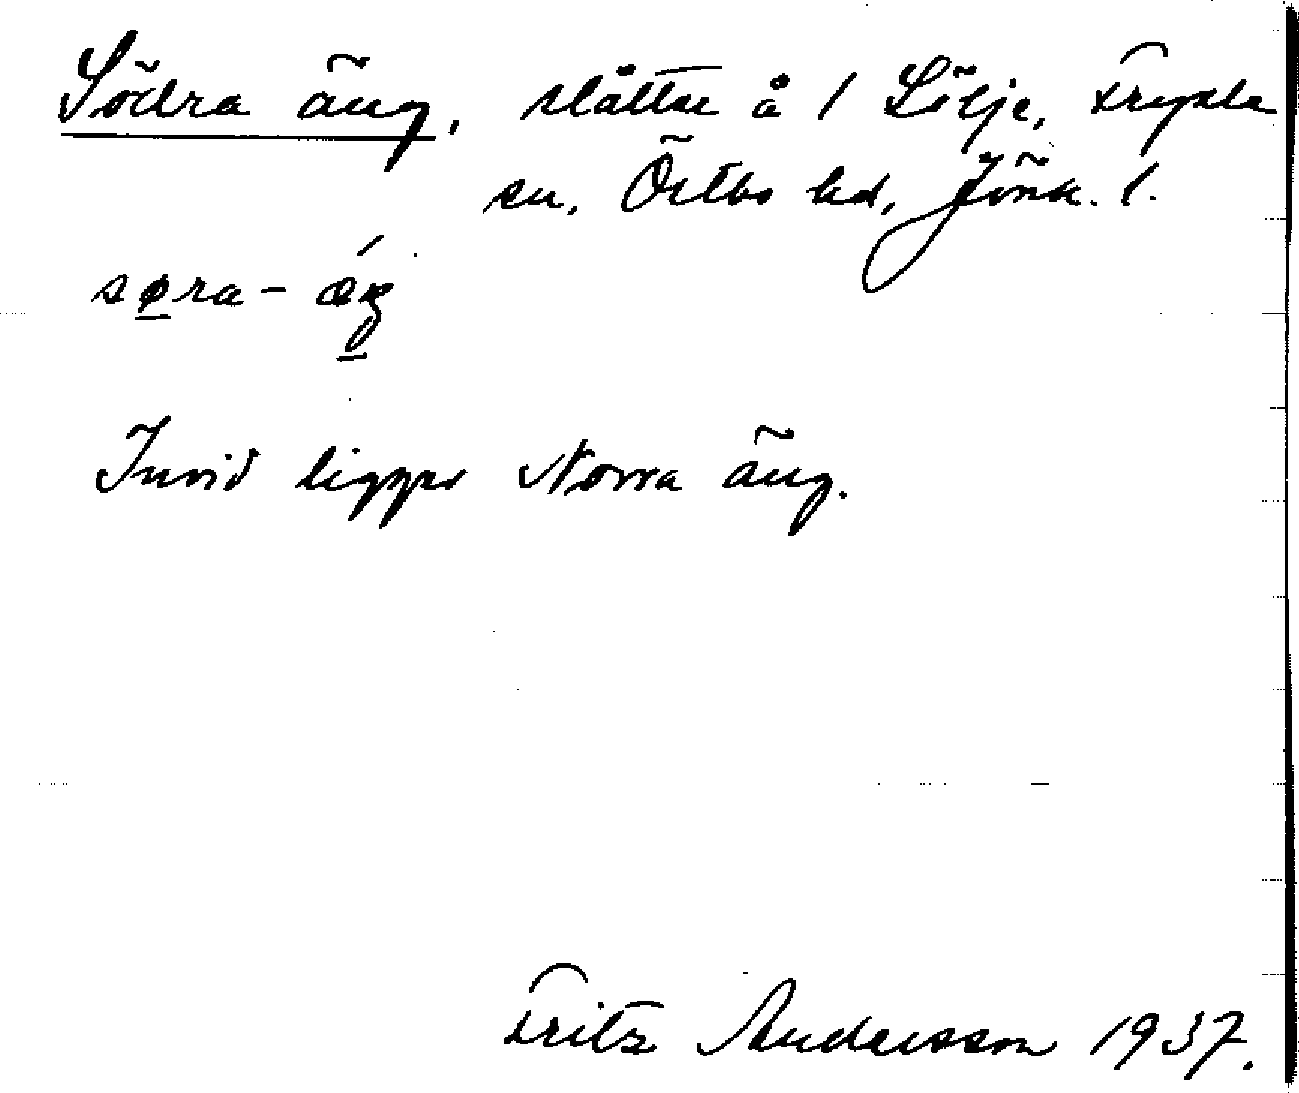 Södra äng, slåtter å 1 Lölje, Fryele
sn, Östbo hd, Jönk. l.
søra-ǽŋ
Invid ligger Norra äng.
Fritz Andersson 1937.